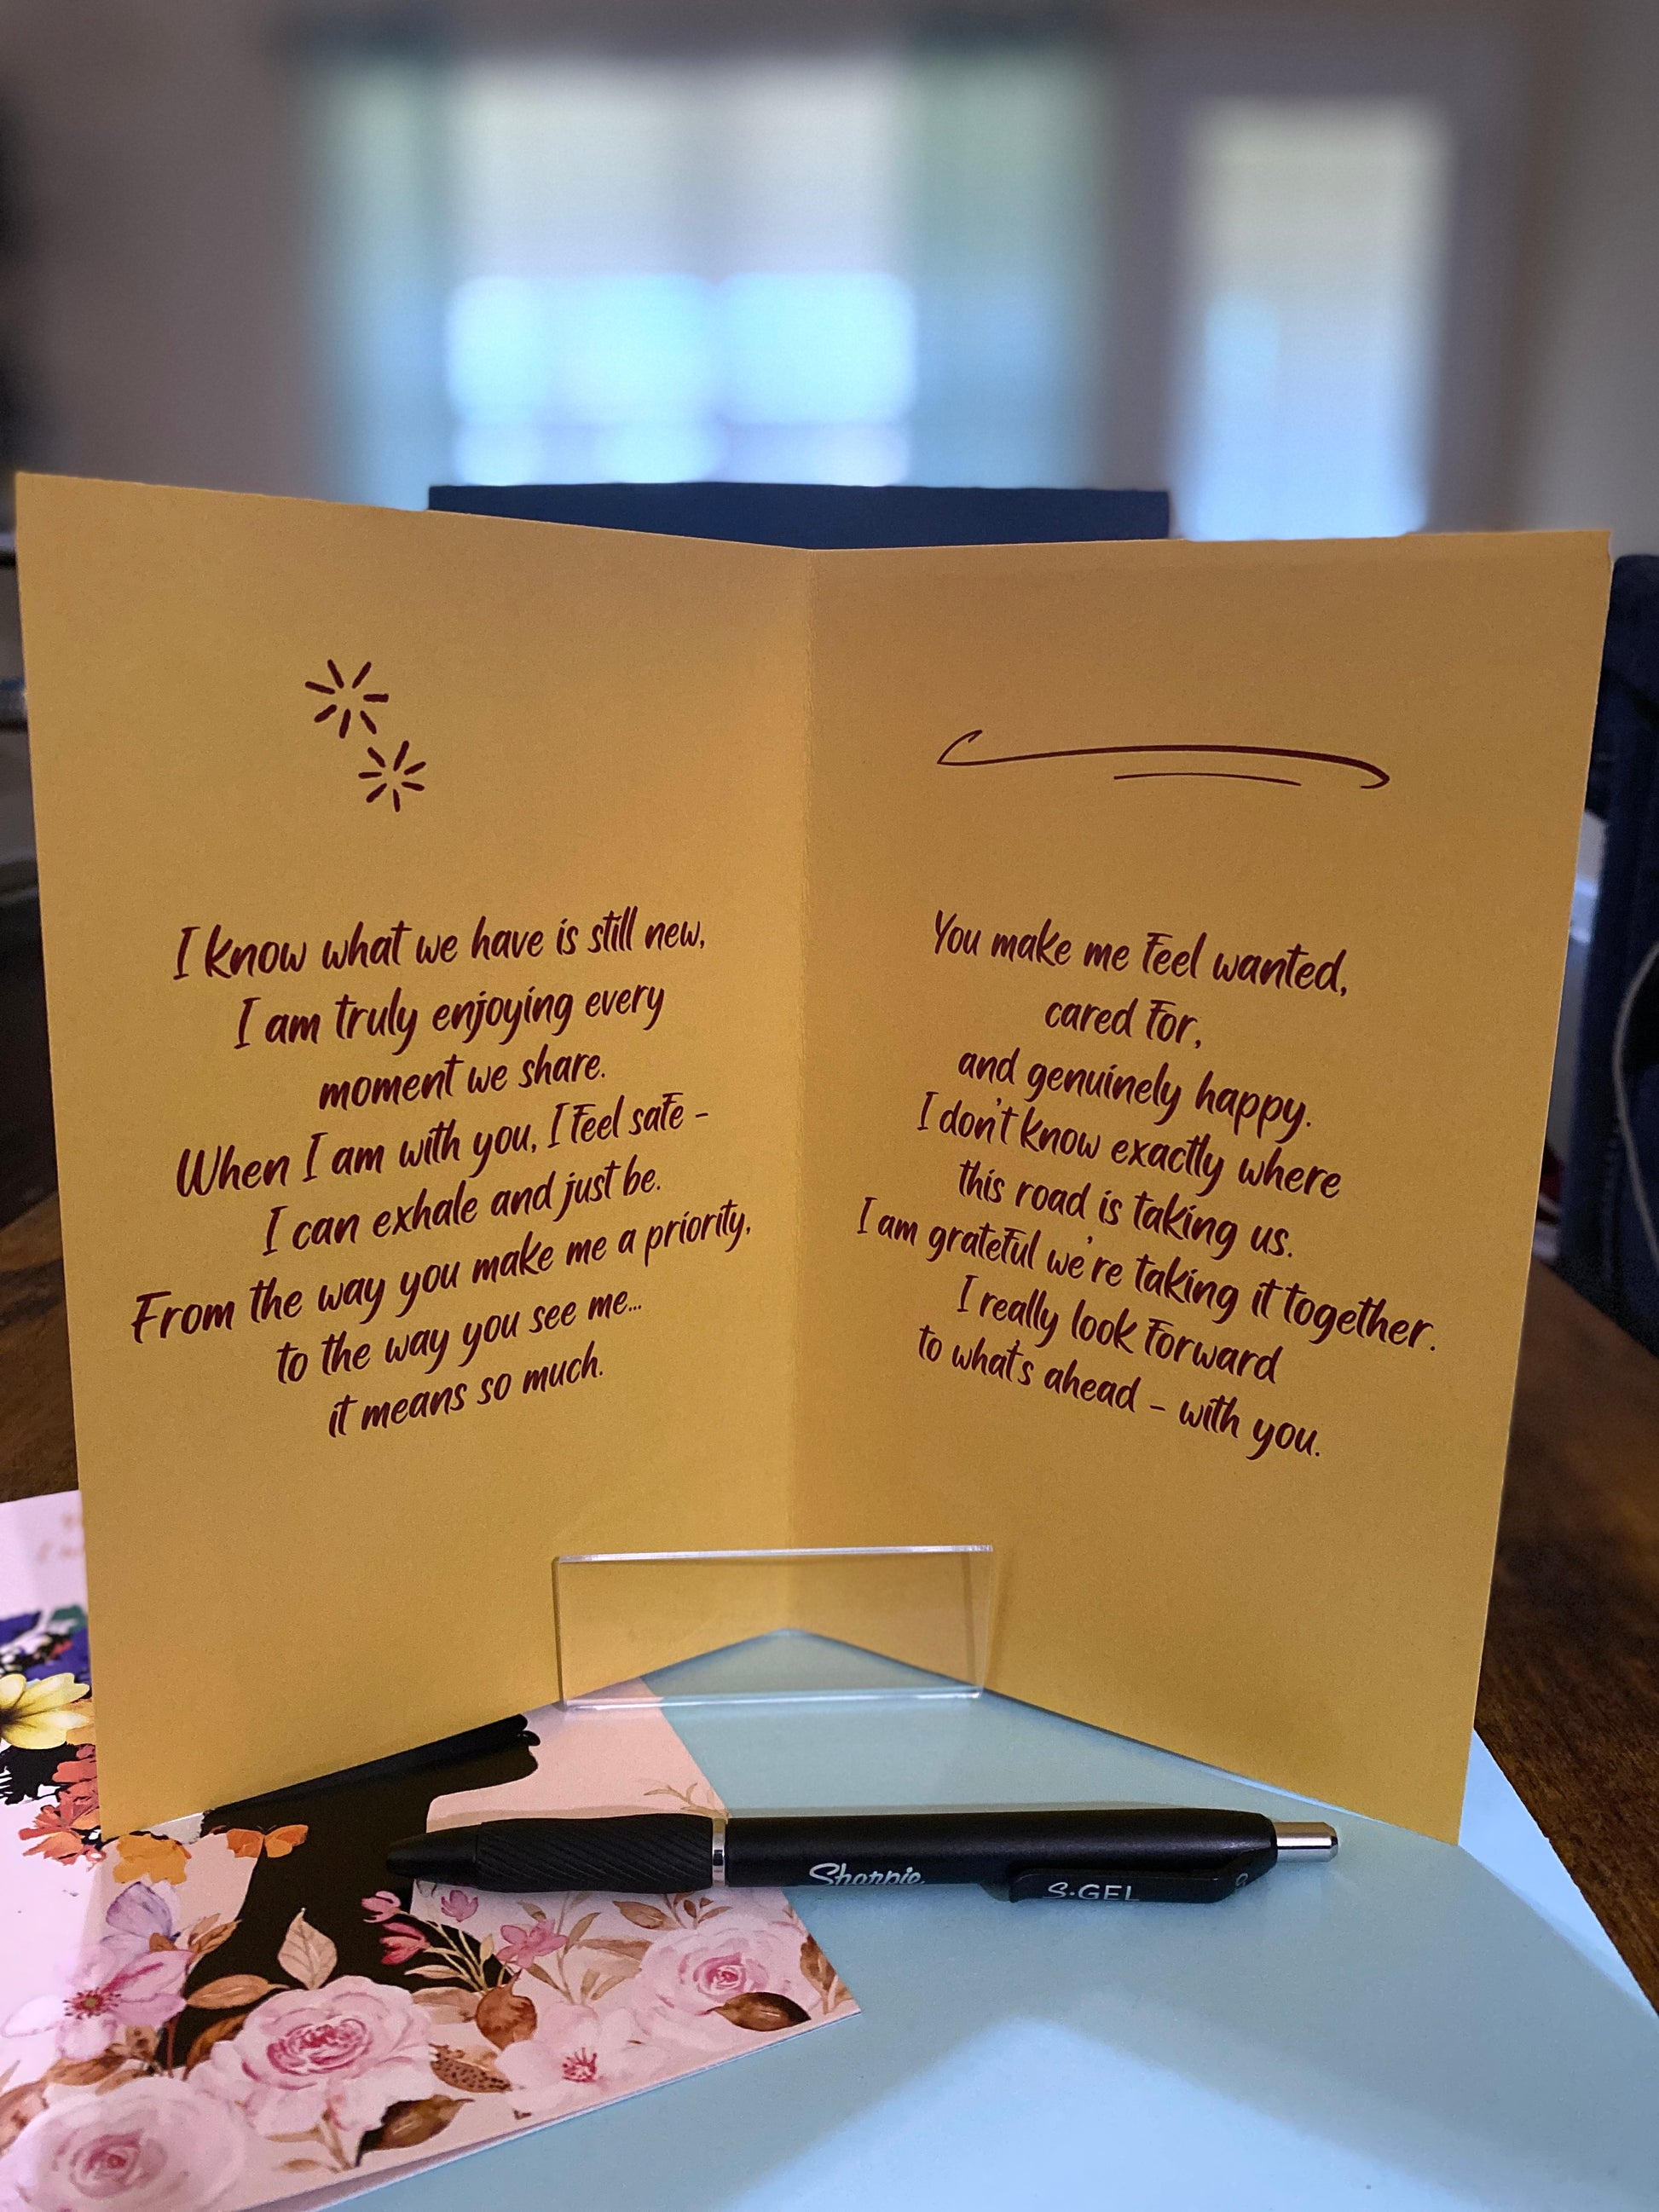 I know what we have is still new,
I am truly enjoying every
moment we share.
When I am with you, I feel safe -
I can exhale and just be.
From the way you make me a priority,
to the way you see me...
it means so much.
You make me feel wanted,
cared for,
and genuinely happy.
I don't know exactly where
this road is taking us.
I am grateful we're taking it together.
I really look forward
to what's ahead - with you.
Sharpie
S·GEL